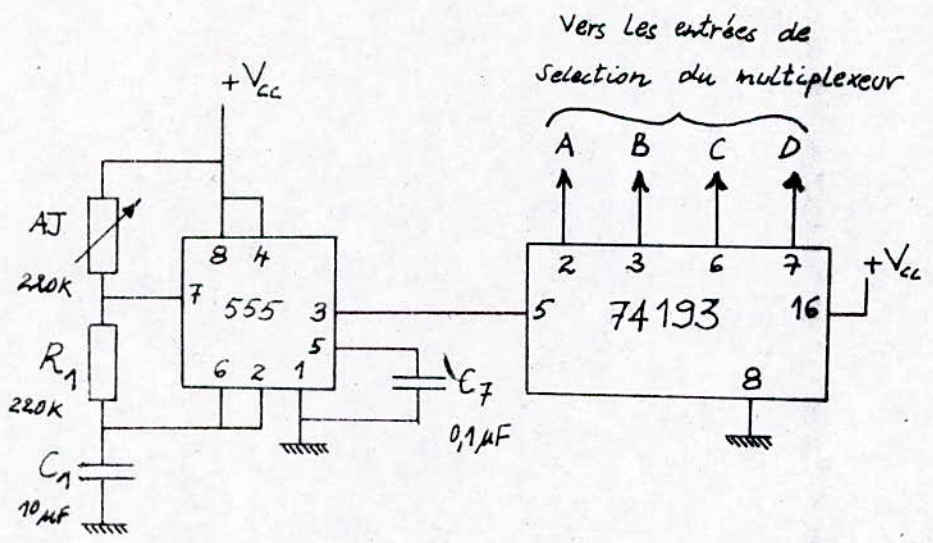 Vers les entrées de
Selection du multiplexeur
+Vcc
A B C D
AJ
220K
8 4
7
555
3
5
6 2 1
R1
220K
C1
10µF
C7
0,1µF
2 3 6 7
5
74193
16
8
+Vcc